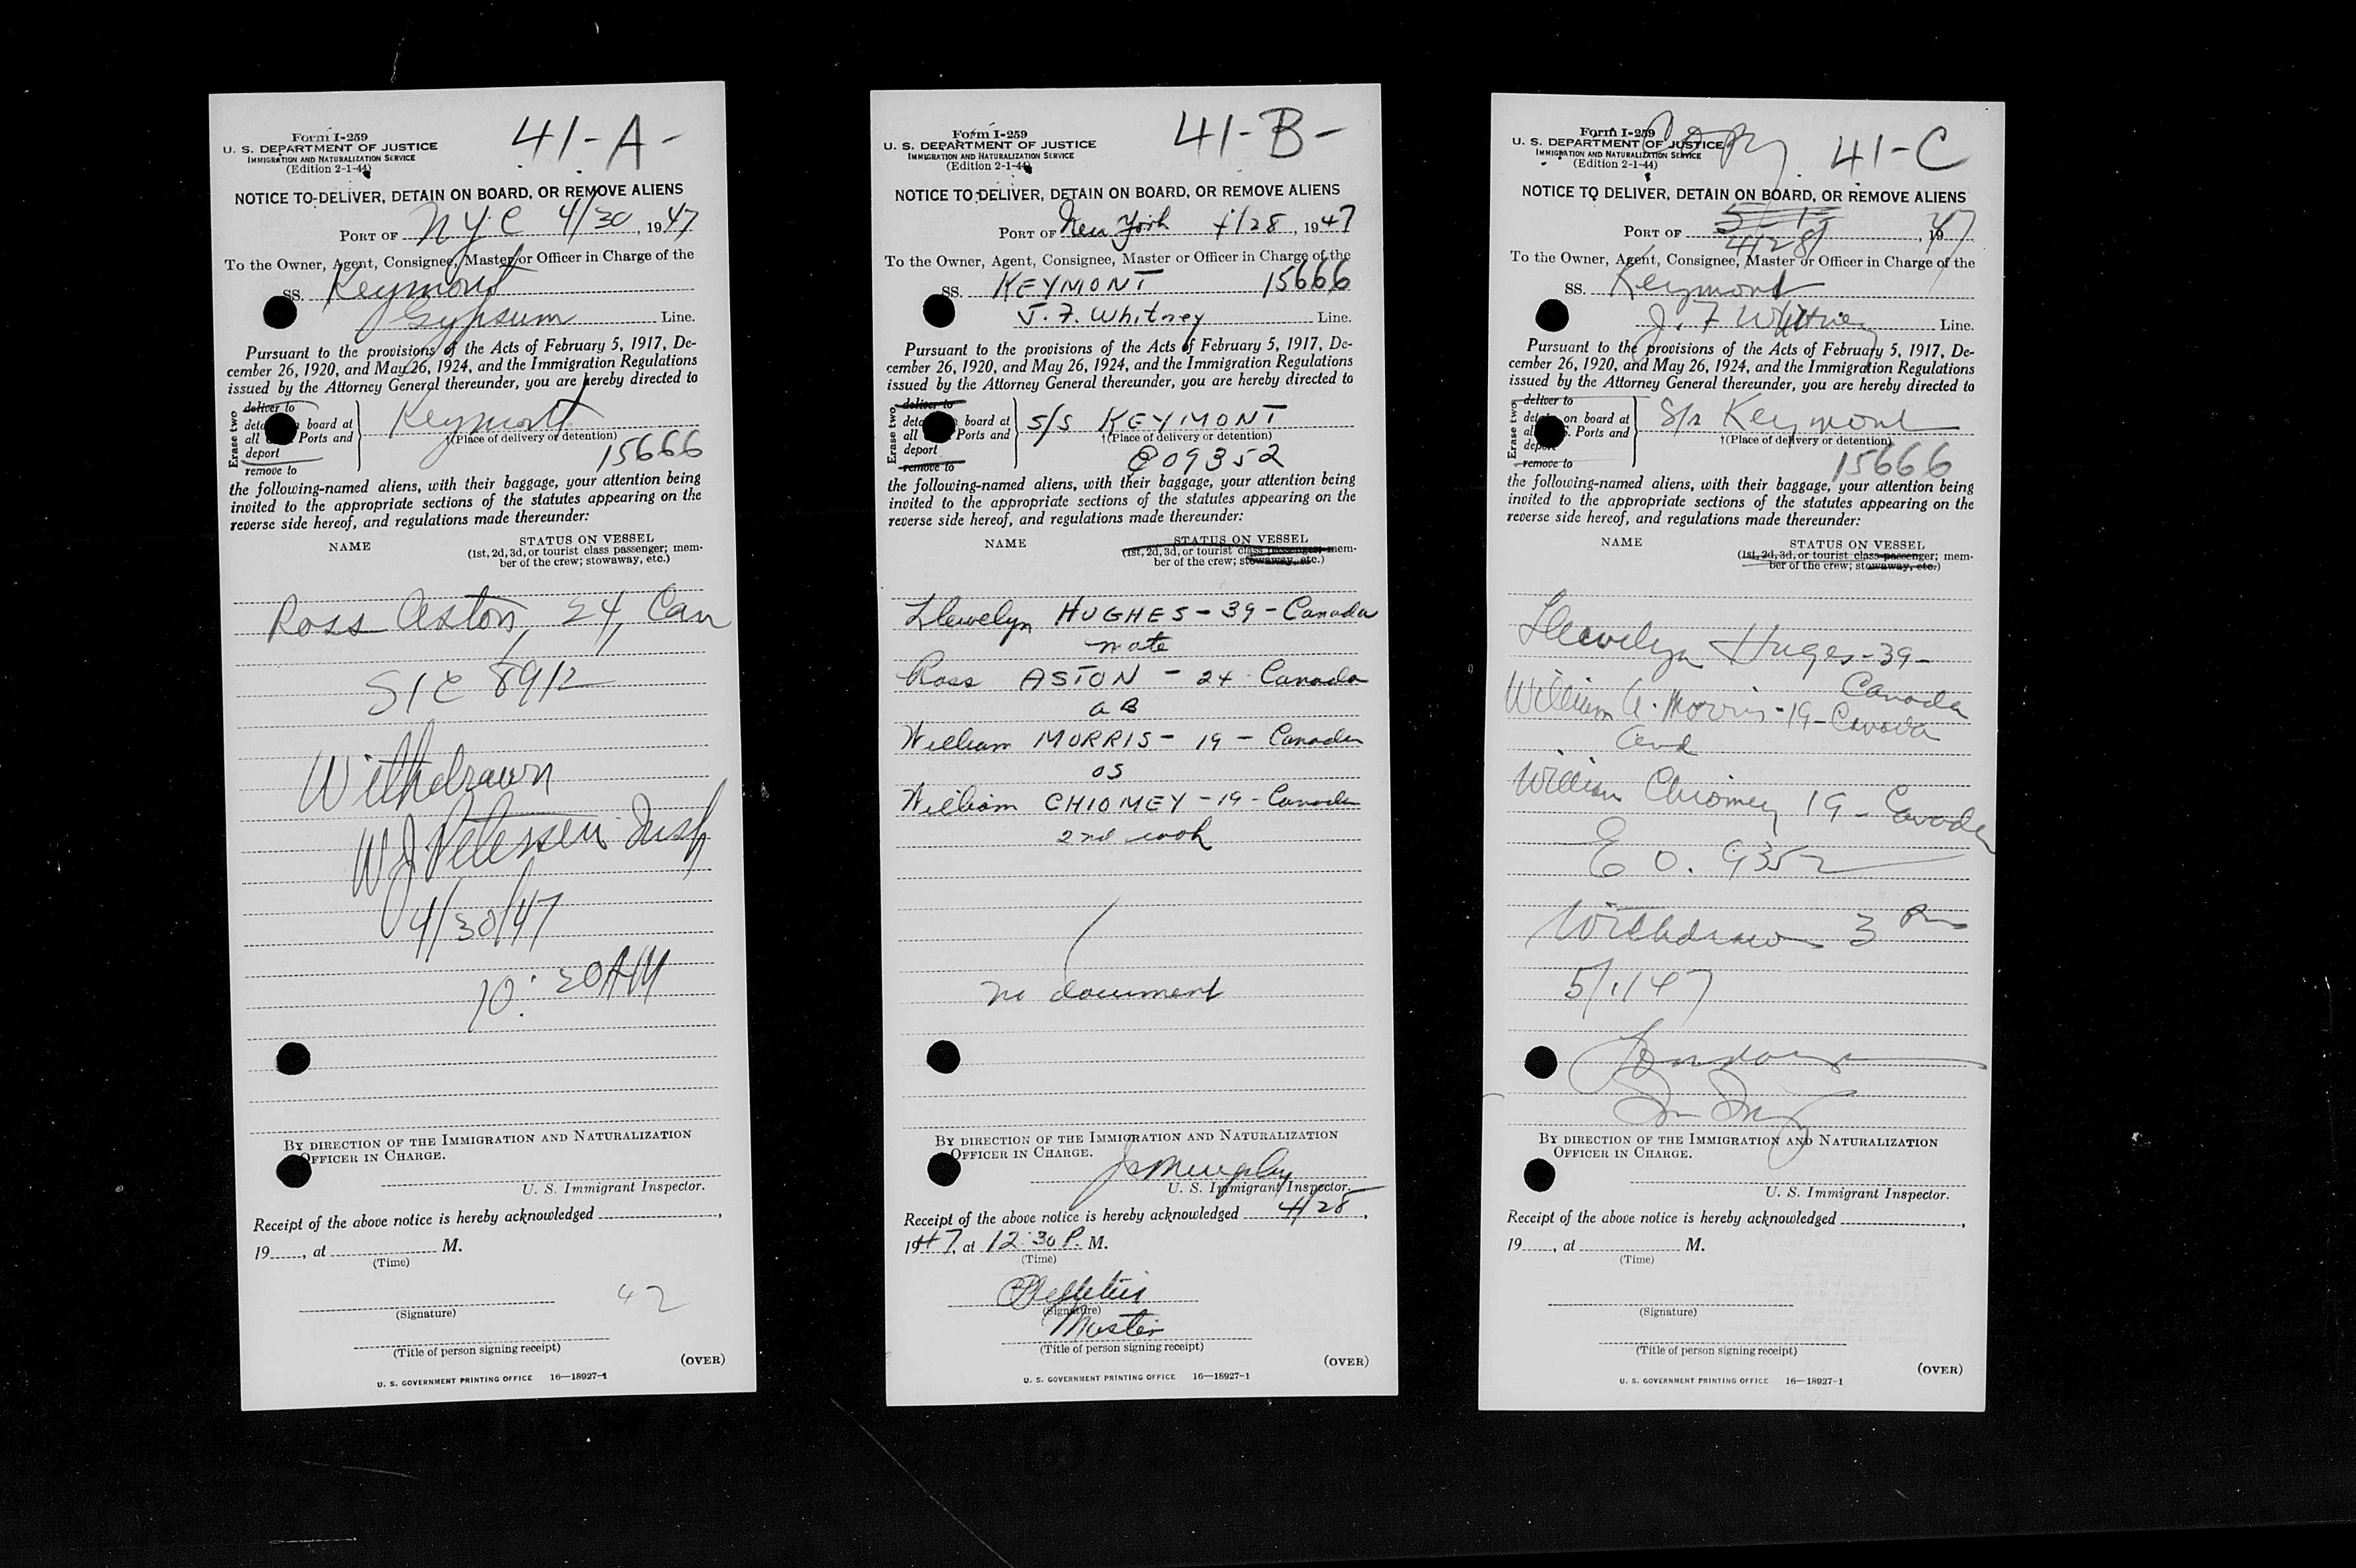 41-A-
Form I-259
U. S. DEPARTMENT OF JUSTICE
IMMIGRATION AND NATURALIZATION SERVICE
(Edition 2-1-44)
NOTICE TO DELIVER, DETAIN ON BOARD, OR REMOVE ALIENS
PORT OF NYC 4/30, 1947
To the Owner, Agent, Consignee, Master or Officer in Charge of the
SS. Keymont
Gypsum Line.
Pursuant to the provisions of the Acts of February 5, 1917, De-
cember 26, 1920, and May 26, 1924, and the Immigration Regulations
issued by the Attorney General thereunder, you are hereby directed to
Erase two
deliver to
board at
all Ports and
deport
remove to
Keymont
†(Place of delivery or detention)
15666
the following-named aliens, with their baggage, your attention being
invited to the appropriate sections of the statutes appearing on the
reverse side hereof, and regulations made thereunder:
NAME STATUS ON VESSEL
(1st, 2d, 3d, or tourist class passenger; mem-
ber of the crew; stowaway, etc.)
Ross Aston, 24, Can
8912
Withdrawn
WJ Petersen Insp
4/30/47
10:30 AM
BY DIRECTION OF THE IMMIGRATION AND NATURALIZATION
OFFICER IN CHARGE.
U. S. Immigrant Inspector.
Receipt of the above notice is hereby acknowledged ,
19 , at M.
(Time)
42
(Signature)
(Title of person signing receipt)
(OVER)
U. S. GOVERNMENT PRINTING OFFICE 16—18927-1
41-B-
Form I-259
U. S. DEPARTMENT OF JUSTICE
IMMIGRATION AND NATURALIZATION SERVICE
(Edition 2-1-44)
NOTICE TO DELIVER, DETAIN ON BOARD, OR REMOVE ALIENS
PORT OF New York 4/28, 1947
To the Owner, Agent, Consignee, Master or Officer in Charge of the
SS. KEYMONT 15666
J. F. Whitney Line.
Pursuant to the provisions of the Acts of February 5, 1917, De-
cember 26, 1920, and May 26, 1924, and the Immigration Regulations
issued by the Attorney General thereunder, you are hereby directed to
Erase two
deliver to
board at
all Ports and
deport
remove to
S/S KEYMONT
†(Place of delivery or detention)
EO9352
the following-named aliens, with their baggage, your attention being
invited to the appropriate sections of the statutes appearing on the
reverse side hereof, and regulations made thereunder:
NAME STATUS ON VESSEL
(1st, 2d, 3d, or tourist class passenger; mem-
ber of the crew; stowaway, etc.)
Llewelyn HUGHES - 39 - Canada
mate
Ross ASTON - 24 - Canada
AB
William MORRIS - 19 - Canada
OS
William CHIOMEY - 19 - Canada
2nd cook
no document
BY DIRECTION OF THE IMMIGRATION AND NATURALIZATION
OFFICER IN CHARGE.
U. S. Immigrant Inspector.
Receipt of the above notice is hereby acknowledged 4/28,
1947, at 12:30 P. M.
(Time)
(Signature)
Master
(Title of person signing receipt)
(OVER)
U. S. GOVERNMENT PRINTING OFFICE 16—18927-1
Copy 41-C
Form I-259
U. S. DEPARTMENT OF JUSTICE
IMMIGRATION AND NATURALIZATION SERVICE
(Edition 2-1-44)
NOTICE TO DELIVER, DETAIN ON BOARD, OR REMOVE ALIENS
PORT OF 4/28, 1947
To the Owner, Agent, Consignee, Master or Officer in Charge of the
SS. Keymont
J. F Whitney Line.
Pursuant to the provisions of the Acts of February 5, 1917, De-
cember 26, 1920, and May 26, 1924, and the Immigration Regulations
issued by the Attorney General thereunder, you are hereby directed to
Erase two
deliver to
on board at
Ports and
remove to
S/s Keymont
†(Place of delivery or detention)
15666
the following-named aliens, with their baggage, your attention being
invited to the appropriate sections of the statutes appearing on the
reverse side hereof, and regulations made thereunder:
NAME STATUS ON VESSEL
(1st, 2d, 3d, or tourist class passenger; mem-
ber of the crew; stowaway, etc.)
Llewelyn Huges - 39 -
Canada
William A. Morris - 19 - Canada
and
William Chiomey 19 - Canada
EO. 9352
Withdrawn 3 Pm
5/1/47
BY DIRECTION OF THE IMMIGRATION AND NATURALIZATION
OFFICER IN CHARGE.
U. S. Immigrant Inspector.
Receipt of the above notice is hereby acknowledged ,
19 , at M.
(Time)
(Signature)
(Title of person signing receipt)
(OVER)
U. S. GOVERNMENT PRINTING OFFICE 16—18927-1